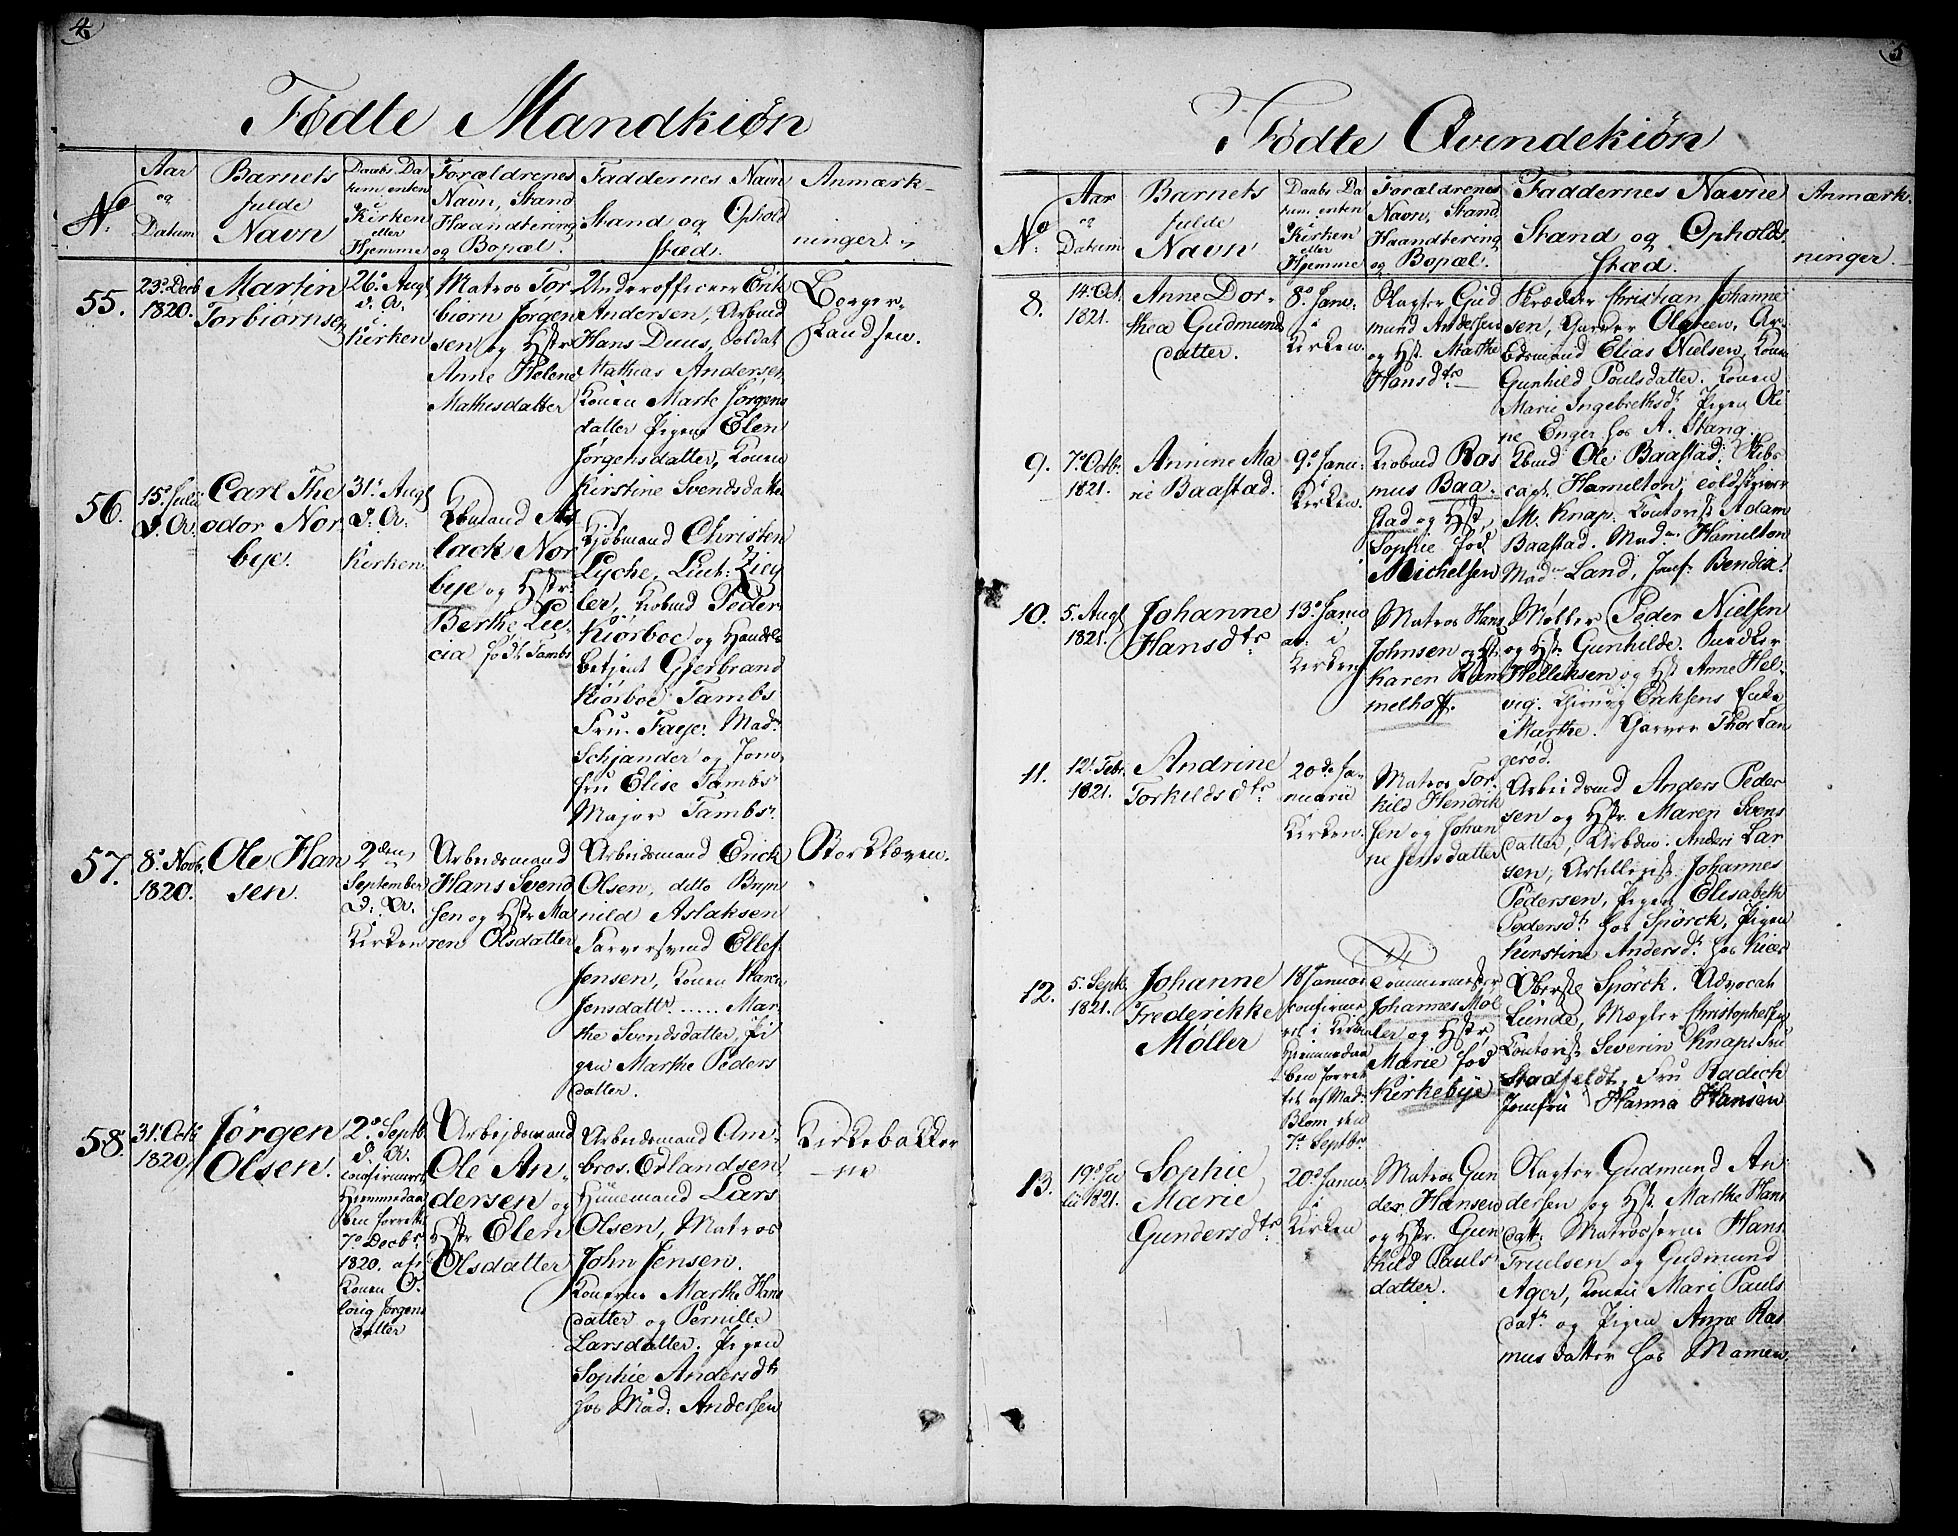 4.
Fødte Mandkiøn
No
Aar
og
Datum
Barnets
fulde
Navn
Daabs Da
tum enten
i
Kirken
eller
Hjemme
Forældrenes
Navn, Stand
Haandtering
og Bopæl.
Faddernes Navn
Stand og Ophold
stæd.
Anmærk-
ninger.
55.
23de Decb
1820.
Martin
Torbiørnsen
26. Augs
d. A.
Kirken
Matros Tor
biørn Jørgen
sen og Hstr
Anne Helene
Mathisdatter
Underofficeer Erik
Andersen, Arbmd
Hans Duus, Soldat
Mathias Andersen,
Konen Marte Jørgens
datter Pigen Elen
Jørgensdatter, Konen
Kirstine Svendsdatter
Borger-
Kandsen.
56.
15. Juli
d. A.
Carl The
odor Nor
bye.
31. Augs
d. A.
Kirken.
Kbmand As
lack Nor
bye og Hstr
Berthe Lu
cia født Tambs
Kjøbmand Christen
Lyche, Lieut. Zieg
ler, Kobmd Peder
Kiørboe og Handels
betjent Gjerbrand
Kiørboe Tambs
Fru Faye. Mad.
Schjander og Jom
fru Elise Tambs
Major Tambs.
57.
8. Novb.
1820.
Ole Han
sen.
2den
September
d. A.
Kirken
Arbeidsmand
Hans Svend
sen og Hstr Ma
ren Olsdatter
Arbeidsmand Erick
Olsen, ditto Bryn
nild Aslaksen
Farversvend Ellef
Jensen, Konen Karen
Jensdattr. ..... Mar
the Svendsdatter, Pi
gen Marthe Peders
datter.
Storkleven.
58.
31. Octb
1820
Jørgen
Olsen.
2. Septb.
d. A.
confirmert
Hjemmedaa
ben forrettet
7. Decbr.
1820. af
Konen O.
lovig Jørgens
datter
Arbejdsmand
Ole An-
dersen og
Hstr Elen
Olsdatter
Arbeidsmand Am-
bros. Edlandsen
Huusmand Lars
Olsen, Matros
John Jensen.
Konerne Marthe Hans
datter og Pernille
Larsdatter. Pigen
Sophie Andersdtr
hos Mad. Andersen
Kirkebakker
ne
5
Fødte Qvindekiøn
No
Aar
og
Datum
Barnets
fulde
Navn
Daabs Da
tum enten
i Kirken
eller
Hjemme
Forældrenes
Navn, Stand
Haandtering
og Bopæl.
Faddernes Navne
Stand og Opholds
stæd.
Anmærk-
ninger.
8.
14. Oct.
1821.
Anne Dor-
thea Gudmunds
datter.
8. Janu.
i
Kirken.
Slagter Gud
mund Andersen
og Hst. Marthe
Hansdtr
Skrædder Christian Johanne
sen, Garver Olgreen, Ar-
beidsmand Elias Nielsen, Konen
Gunhild Poulsdatter. Konen
Marie Ingebrethsdtr Pigen Oli
ne Enger hos A. Stang.
9.
7. Octb.
1821.
Annine Ma
rie Baastad.
9. Janu.
i
Kirken.
Kobmd Ras
mus Baa-
stad og Hstr
Sophie fød
Michelsen
Kbmd Ole Baastad. Skibs
capt. Hamilton, Toldskriver
M. Knap. Kontorist Adam
Baastad. Madm Hamilton
Madm Land, Jomf. Bendix.
10.
5. Augs
1821.
Johanne
Hansdtr
13. Janu
ar i
Kirken.
Matros Hans
Johnsen og Hst.
Karen Rum
melhoff.
Møller Peder Nielsen
og Hstr Gunhilde. Snedker
Helliksen og Hst Anne Hel-
vig. Eriksens Enke
Marthe. Garver Thor Lan
gerød.
11.
12. Febr.
1821.
Andrine
Torkildsdtr
20de Ja-
nuarii
Kirken.
Matros Tor
kild Hendrik
sen og Johan
ne Jensdatter
Arbeidsmd Anders Peder
sen og Hstr Maren Svens
datter, Arbdsm. Anders Lar
sen, Artillerist Johannes
Pedersen, Pigen Elisabeth
Pedersdtr hos Spørck, Pigen
Kirstine Andersdtr hos Kiær
12.
5. Septb.
1821.
Johanne
Frederikke
Møller
18 Januar
confirme
ret i Kirken
Hjemmedaa
ben forret
tet af Mad.
Blom den
7de Septbr.
Tømmermester
Johannes Møl
ler og Hstr
Marie fød
Kirkebye
Oberst Spörck. Advocat
Lunde, Mægler Christophersen,
Kontorist Severin Knap. Fru
Stadfeldt, Fru Radich
Jomfru Hanna Hansen
13.
19. Ju
lii 1821.
Sophie
Marie
Gundersdtr
20. Janu.
i
Kirken
Matros Gun
der Hansen
og Hstr. Gun
hild Pauls
datter.
Slagter Gudmund An
dersen og Hst. Marthe Hans
datt. Matroserne Hans
Truelsen og Gudmund
Ager, Konen Mari Pauls
datr. og Pigen Anne Ras
musdatter hos Mamen.